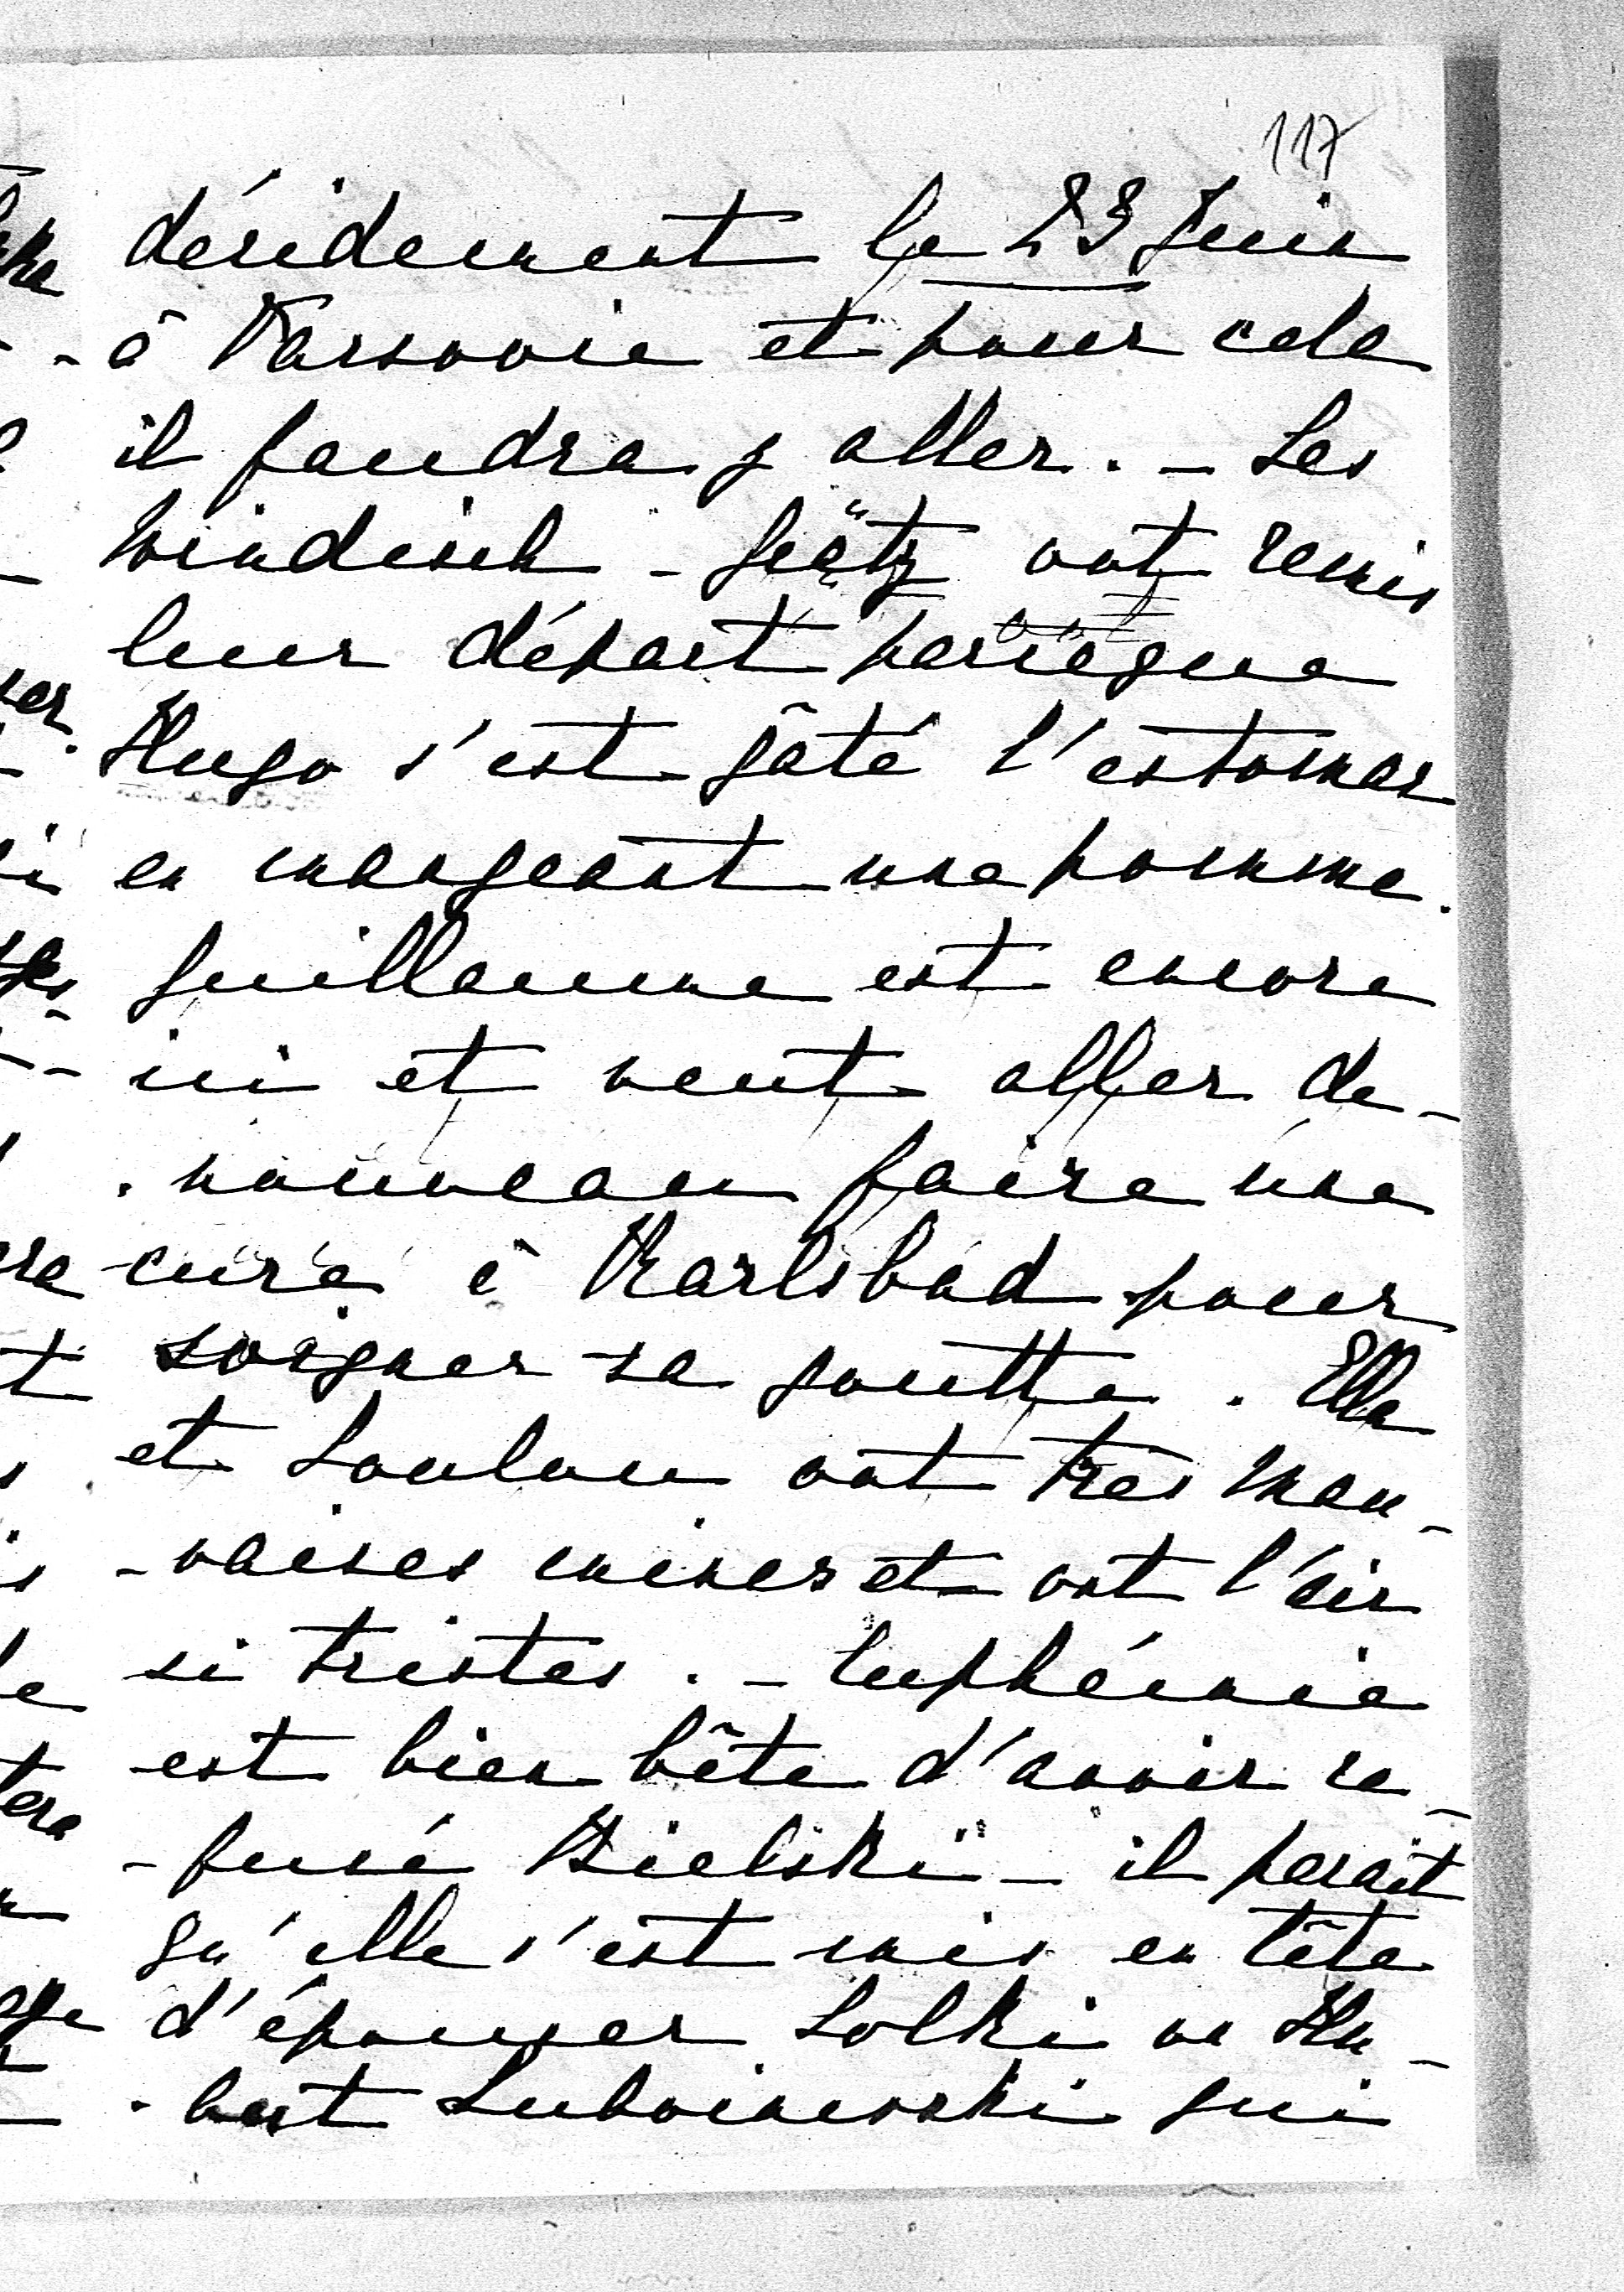 117
décidement le 23 Juin
- à Varsovie et pour cela
il faudra y aller. - Les
Windisch - Grätz ont remis
leur départ parceque
Hugo s'est gâté l'estomac
en mangeant une pomme.
Guillaume est encore
ici et veut aller de-
nouveau faire une
cure à Karlsbad pour
soigner sa goutte. Ella
et Loulou ont très mau-
-vaises mines et ont l'air
si tristes. - Euphémie
est bien bête d'avoir re-
-fusé Bielski - il parait
qu'elle s'est mis en tête
d'épouser Lolki ou Hu-
-bert Lubomirski qui